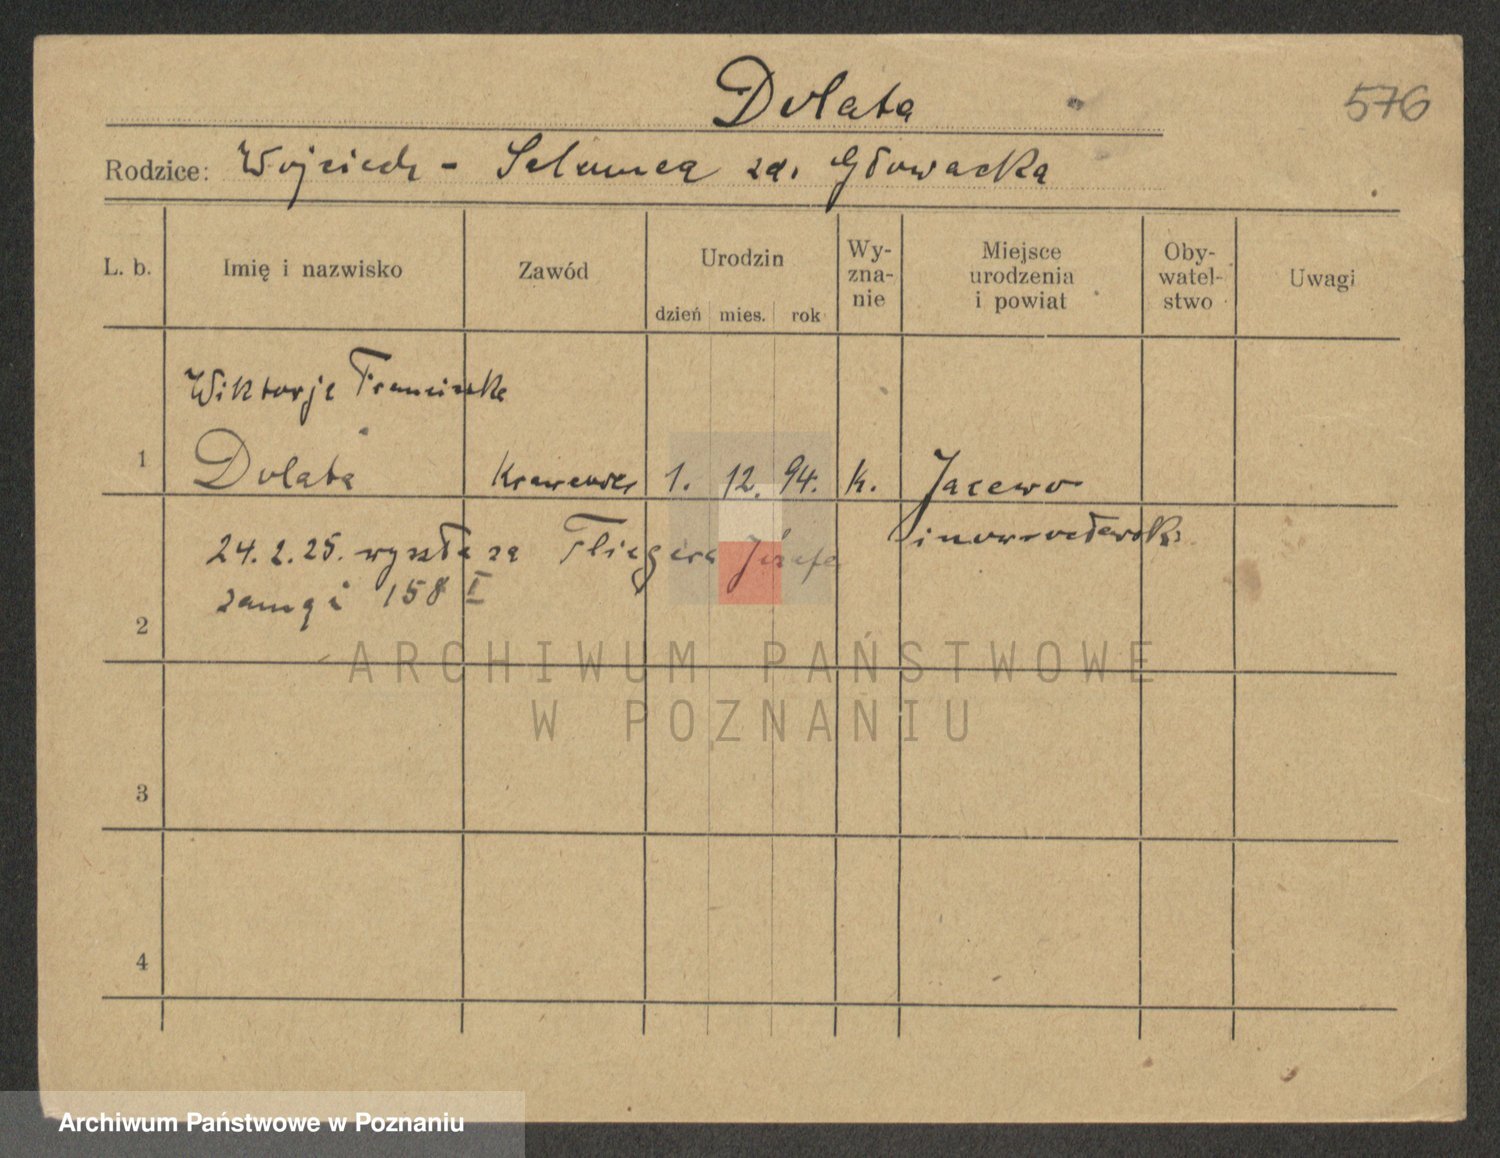 Dolata
576
Rodzice: Wojciech - Salomea zd. Głowacka
L. b.
Imię i nazwisko
Zawód
Urodzin
dzień mies. rok
Wy-
zna-
nie
Miejsce
urodzenia
i powiat
Oby-
watel-
stwo
Uwagi
Wiktorja Franciszka
1 Dolata Krawcowa 1. 12. 94. k. Jacewo
inowrocławski
24.2.25. wyszła za Fliegera Józefa
158 I
2
ARCHIWUM PAŃSTWOWE
W POZNANIU
3
4
Archiwum Państwowe w Poznaniu